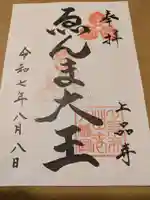 奉拝
ゑんま大王
上品寺
令和七年八月八日